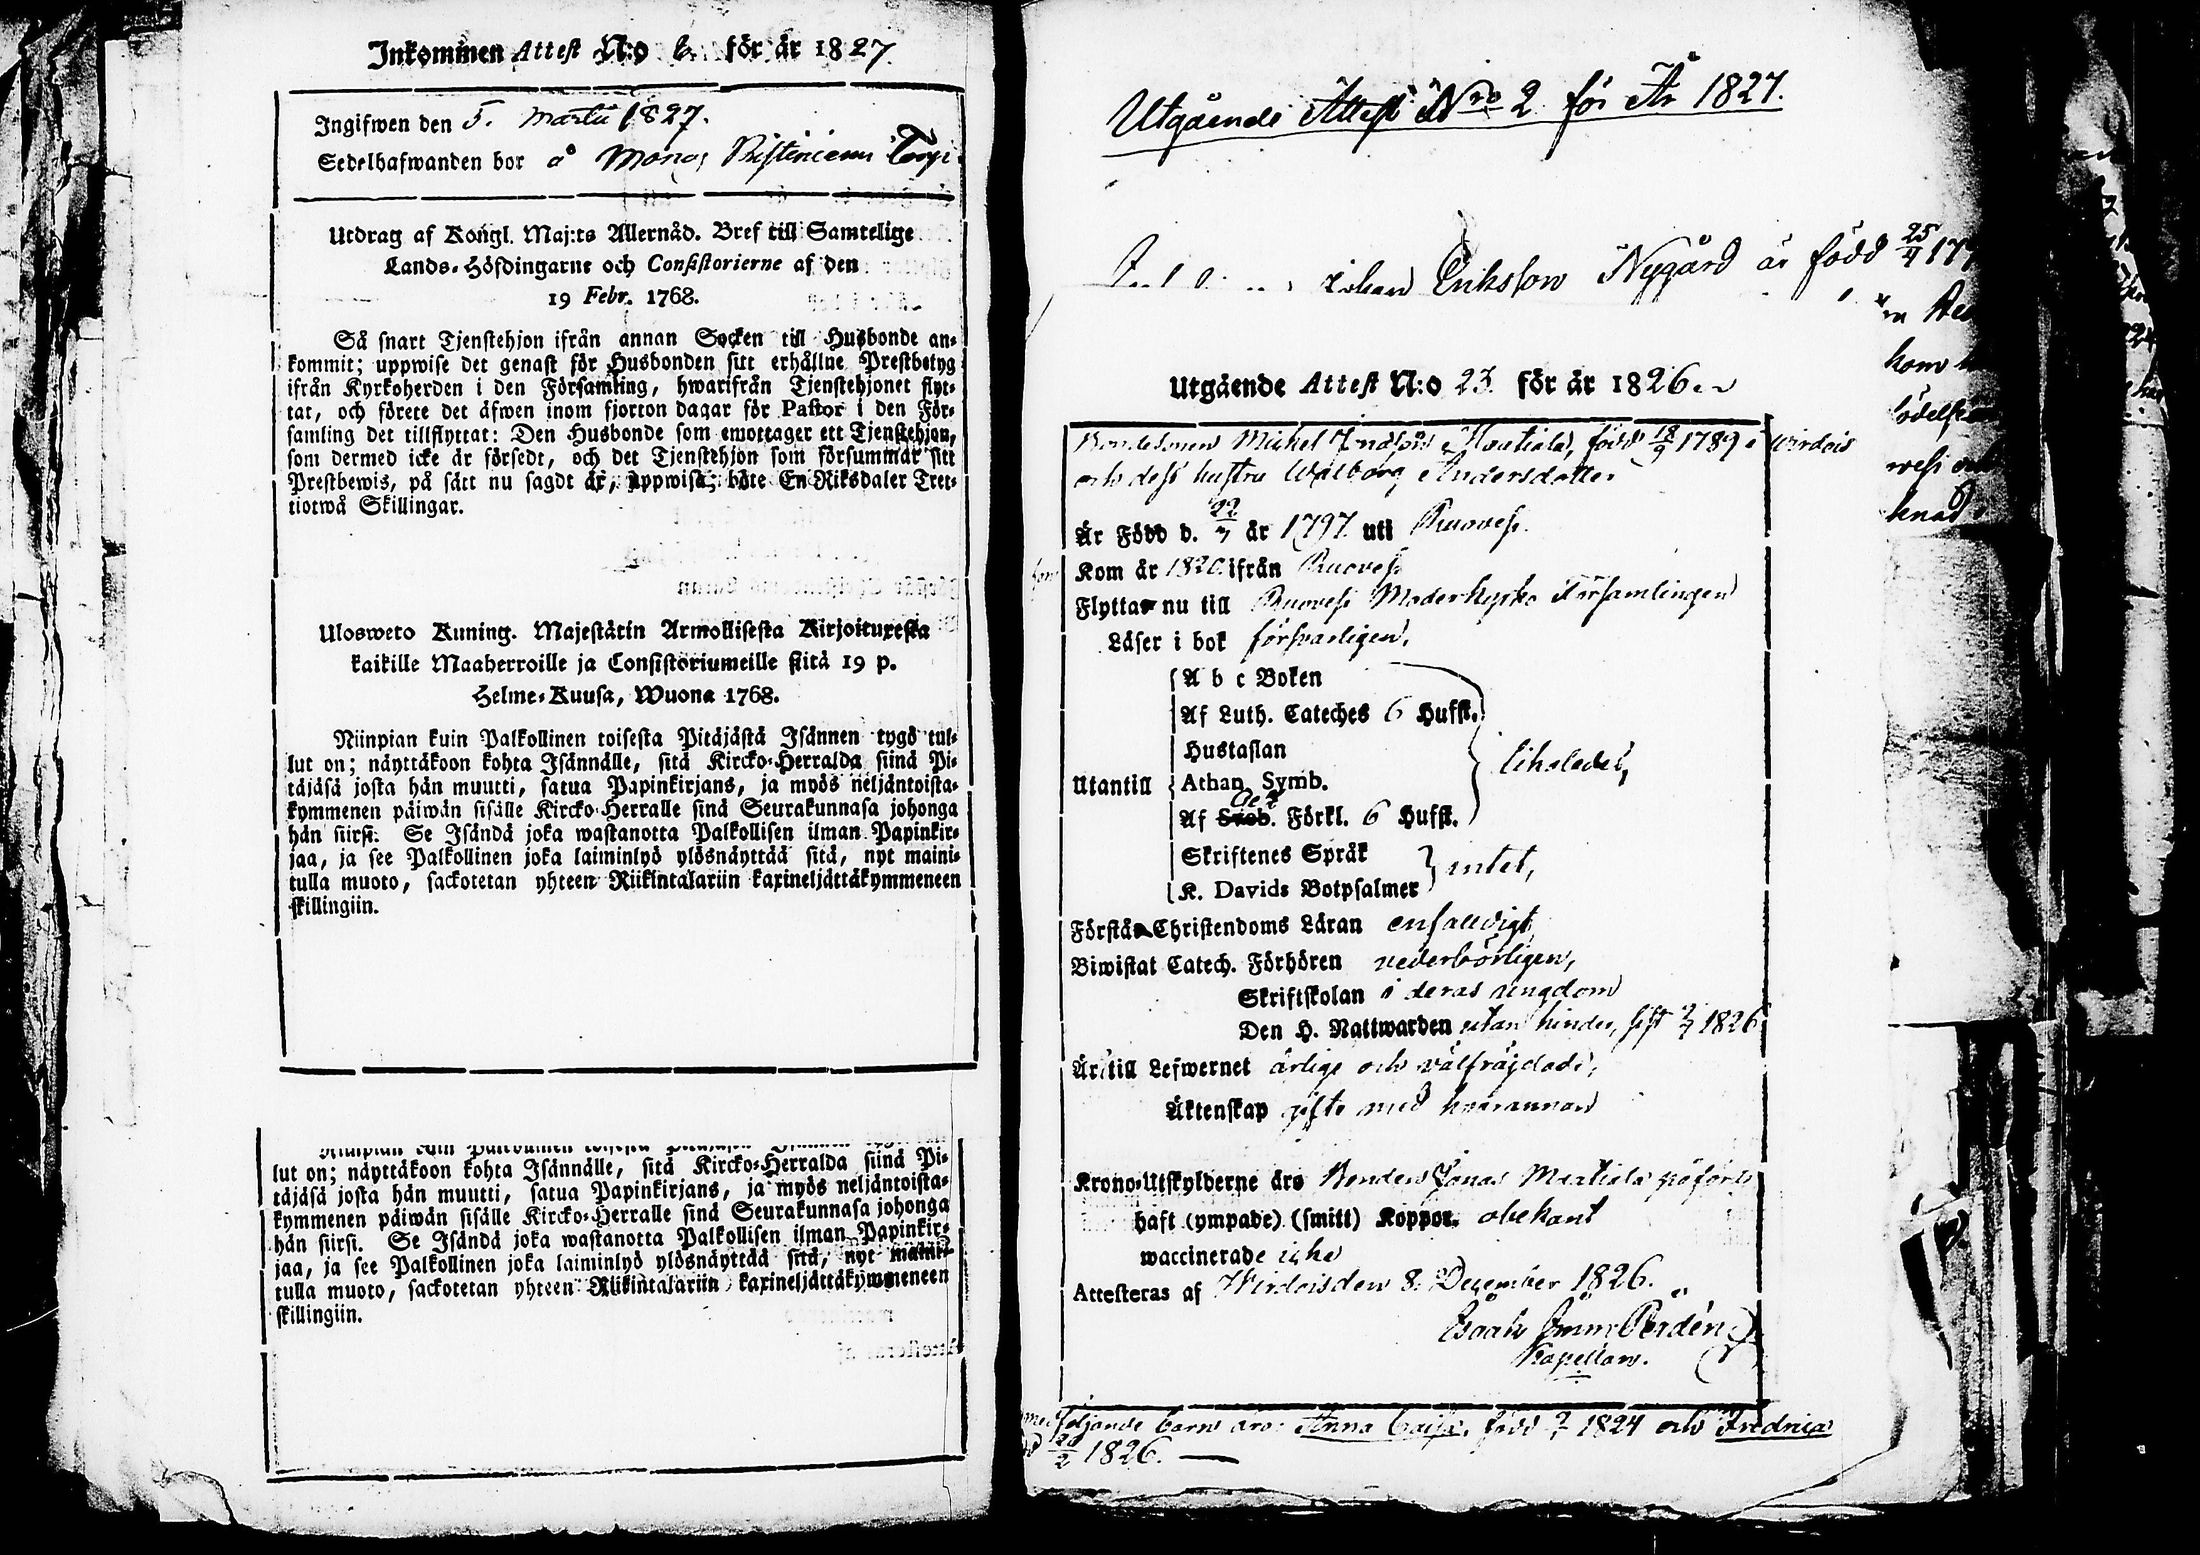 Inkommen Attest N:o 6 för år 1827.
Ingifwen den 5. Martii 1827.
Sedelhafwanden bor å
Utdrag af Kongl. Maj:ts Allernåd. Bref till Samtelige
Lands-Höfdingarne och Consistorierne af den
19 Febr. 1768.
Så snart Tjenstehjon ifrån annan Socken till Husbonde an-
kommit; uppwise det genast för Husbonden sitt erhållne Prestbetyg
ifrån Kyrkoherden i den Församling, hwarifrån Tjenstehjonet flyt-
tat, och förete det äfwen inom fjorton dagar för Pastor i den För-
samling det tillflyttat: Den Husbonde som emottager ett Tjenstehjon,
som dermed icke är försedt, och det Tjenstehjon som försummar sitt
Prestbewis, på sätt nu sagdt är, uppwisa; böte En Riksdaler Tret-
tiotwå Skillingar.
Ulosweto Kuning. Majestätin Armollisesta Kirjoituxesta
kaikille Maaherroille ja Consistoriumeille siitä 19 p.
Helme-Kuusa, Wuona 1768.
Niinpian kuin Palkollinen toisesta Pitäjästä Isännen tygö tul-
lut on; näyttäkoon kohta Isännälle, sitä Kircko-Herralda siinä Pi-
täjäsä josta hän muutti, saatua Papinkirjans, ja myös neljäntoista-
kymmenen päiwän sisälle Kircko-Herralle sinä Seurakunnasa johonga
hän siirsi. Se Isändä joka wastanotta Palkollisen ilman Papinkir-
jaa, ja see Palkollinen joka laiminlyö ylösnäyttää sitä, nyt maini-
tulla muoto, sackotetan yhteen Riikintalariin kaxineljättäkymmeneen
skillingiin.
lut on; näyttäkoon kohta Isännälle, sitä Kircko-Herralda siinä Pi-
täjäsä josta hän muutti, satua Papinkirjans, ja myös neljäntoista-
kymmenen päiwän sisälle Kircko-Herralle sinä Seurakunnasa johonga
hän siirsi. Se Isändä joka wastanotta Palkollisen ilman Papinkir-
jaa, ja see Palkollinen joka laiminlyö ylösnäyttää sitä, nyt maini-
tulla muoto, sackotetan yhteen Riikintalariin kaxineljättäkymmeneen
skillingiin.
Utgående Attest Nro 2 för År 1827.
Johan Erikson Nygård är född 25/4
Utgående Attest N:o 23. för år 1826.
Bondesonen Michel född 18/9 1789 i Wirdois
och dess hustru Walborg Andersdotter
Är Född d. 22/7 år 1797 uti Ruovesi.
Kom år 1820 ifrån Ruovesi
Flyttar nu till Ruovesi Moderkyrko Församlingen
Läser i bok försvarligen,
A b c Boken
Af Luth. Cateches 6 Hufst.
Hustaflan
Utantill Athan. Symb.
Af Sveb. Förkl. 6 Hufst.
Skriftenes Språk
K. Davids Botpsalmer intet,
Förstår Christendoms Läran enfalldigt,
Biwistat Catech. Förhören vederbörligen,
Skriftskolan i deras ungdom
Den H. Nattwarden utan hinder, sist 2/7 1826
Är till Lefwernet ärlige och välfräjdade,
Äktenskap gifte med hvarannan
Krono-Utskylderne äro Bonden Jonas Martiala påförde
haft (ympade) (smitt) Koppor. obekant
waccinerade icke
Attesteras af Wirdois den 8. December 1826.
Isaak
Kapellan.
följande barn äro: Anna Caisa, född 1824 och Fredrica
20/2 1826.